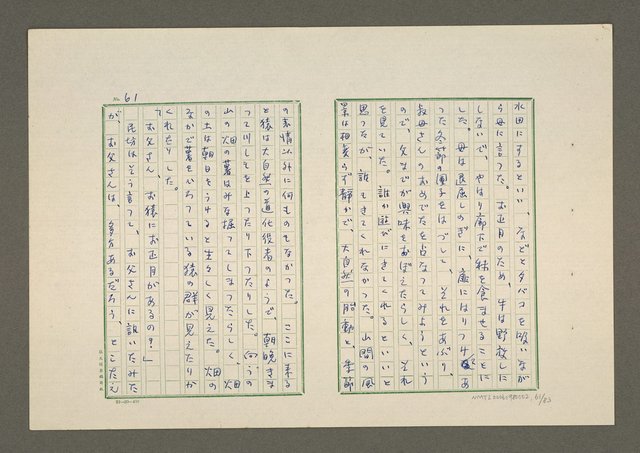 水田にするといい、などとタバコを吸いなが
ら母に言った。お正月のため、牛は野放しに
しないで、やはり廊下で秣を食ませることに
した。母は退屈しのぎに、壁にはりつけてあ
った冬節の団子をはづして、それをあぶり、
叔母さんのおめでたを占なってみようという
ので、父までが興味をおぼえたらしく、それ
を見ていた。誰か遊びにきてくれるといいと
思ったが、誰もきてくれなかった。山間の風
景は相変らず静かで、大自然の胎動と季節
の表情以外に何ものもなかった。ここに来る
と猿は大自然の道化役者のようで、朝晩きま
って川しもを上ったり下ったりした。向うの
山の畑の薯はみな掘ってしまったらしく、畑
の土は朝日をうけると生々しく見えた。畑の
なかで薯をひろっている猿の群が見えたりか
くれたりした。
「お父さん、お猿にお正月があるの？」
民坊はそう言って、お父さんに訊いたみた
が、お父さんは、多分あるだろう、とこたえ
No. 61
NMTL20061980002 61/83